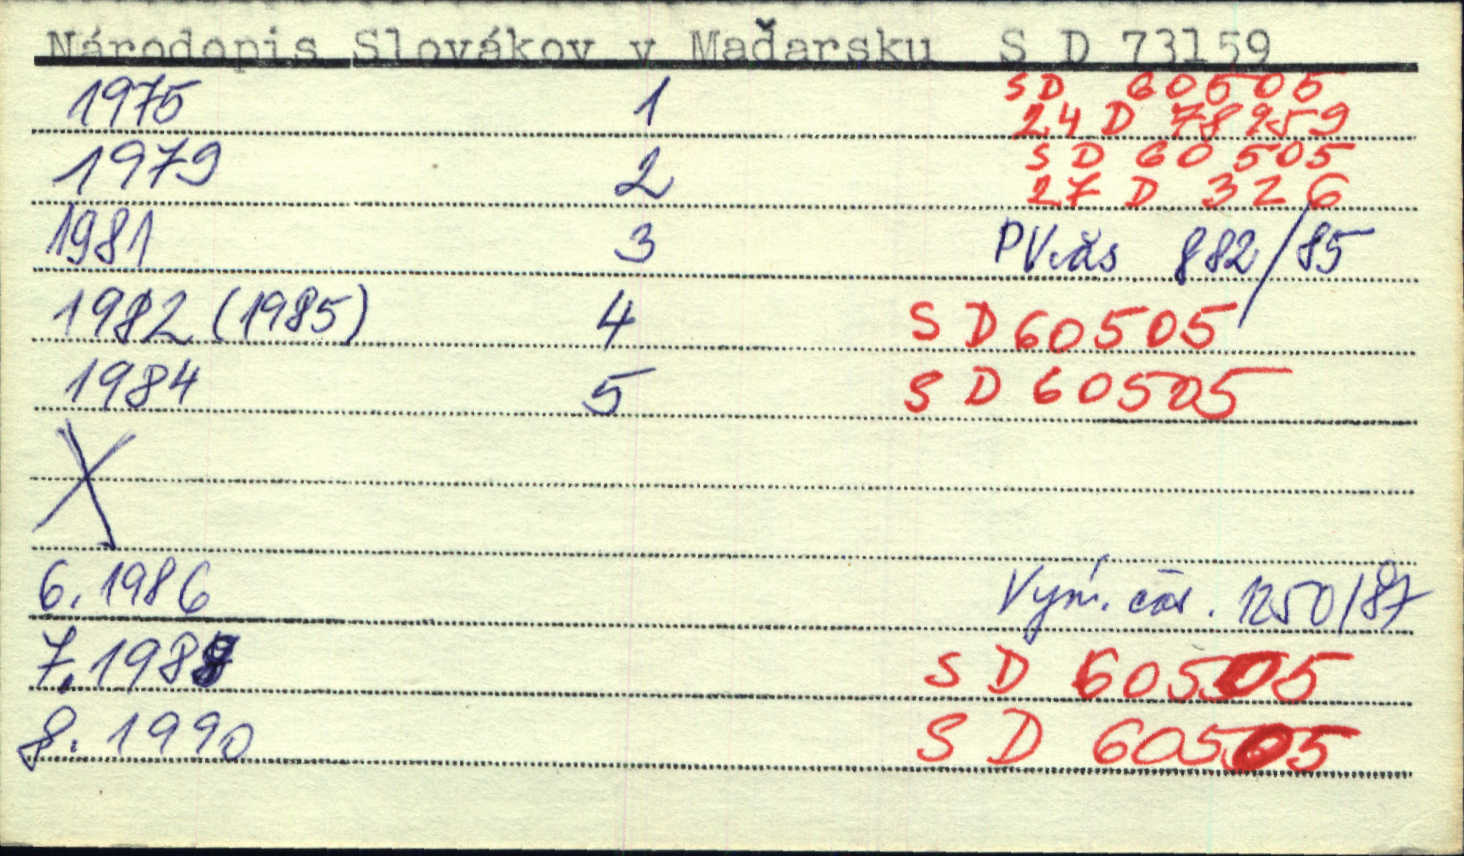 Národopis Slovákov v Maďarsku S D 73159
1975 1 SD 60505
24 D 78959
1979 2 SD 60505
27 D 326
1981 3 PV.čas 882/85
1982 (1985) 4 SD 60505
1984 5 SD 60505
X
6. 1986 Vým. čas. 1250/87
7. 198
SD 60505
8. 1990 SD 60505